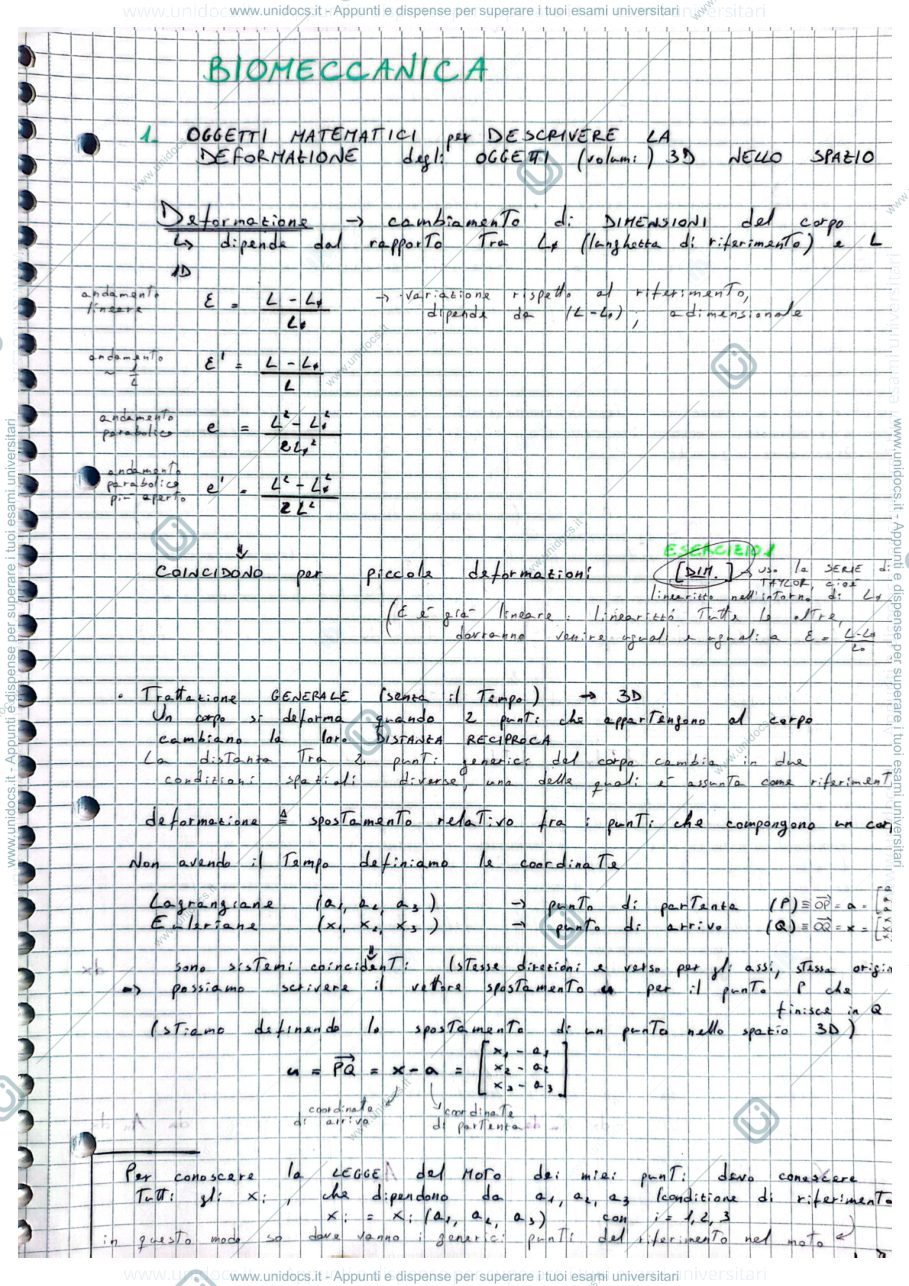 www.unidocs.it - Appunti e dispense per superare i tuoi esami universitari
BIOMECCANICA
1. OGGETTI MATEMATICI per DESCRIVERE LA
DEFORMAZIONE degli OGGETTI (volumi) 3D NELLO SPAZIO
Deformazione → cambiamento di DIMENSIONI del corpo
↳ dipende dal rapporto tra L₀ (lunghezza di riferimento) e L
1D
andamento lineare ε = (L - L₀)/L₀ → variazione rispetto al riferimento,
dipende da (L-L₀) ; adimensionale
andamento ~ 1/L ε' = (L - L₀)/L
andamento parabolico e = (L² - L₀²)/2L₀²
andamento parabolico più aperto e' = (L² - L₀²)/2L²
ESERCIZIO 1
COINCIDONO per piccole deformazioni [DIM.] → uso la SERIE di
TAYLOR, cioè
linearizzo nell'intorno di L₀
(ε è già lineare : linearizzo tutte le altre,
dovranno venire uguali e uguali a ε = (L-L₀)/L₀
• Trattazione GENERALE (senza il tempo) → 3D
Un corpo si deforma quando 2 punti che appartengono al corpo
cambiano la loro DISTANZA RECIPROCA
La distanza tra 2 punti generici del corpo cambia in due
condizioni spaziali diverse, una delle quali è assunta come riferiment
deformazione ≜ spostamento relativo fra i punti che compongono un cor
Non avendo il tempo definiamo le coordinate
Lagrangiane (a₁, a₂, a₃) → punto di partenza (P) ≡ OP = a =
Euleriane (x₁, x₂, x₃) → punto di arrivo (Q) ≡ OQ = x =
sono sistemi coincidenti (stesse direzioni e verso per gli assi, stessa origin
⇒ possiamo scrivere il vettore spostamento u per il punto P che
finisce in Q
(stiamo definendo lo spostamento di un punto nello spazio 3D)
u = PQ = x - a = [x₁ - a₁
x₂ - a₂
x₃ - a₃]
coordinate di arrivo coordinate di partenza
Per conoscere la LEGGE del MOTO dei miei punti devo conoscere
tutti gli xᵢ , che dipendono da a₁, a₂, a₃ (condizione di riferimento
xᵢ = xᵢ (a₁, a₂, a₃) con i = 1,2,3
in questo modo so dove vanno i generici punti del riferimento nel moto
www.unidocs.it - Appunti e dispense per superare i tuoi esami universitari